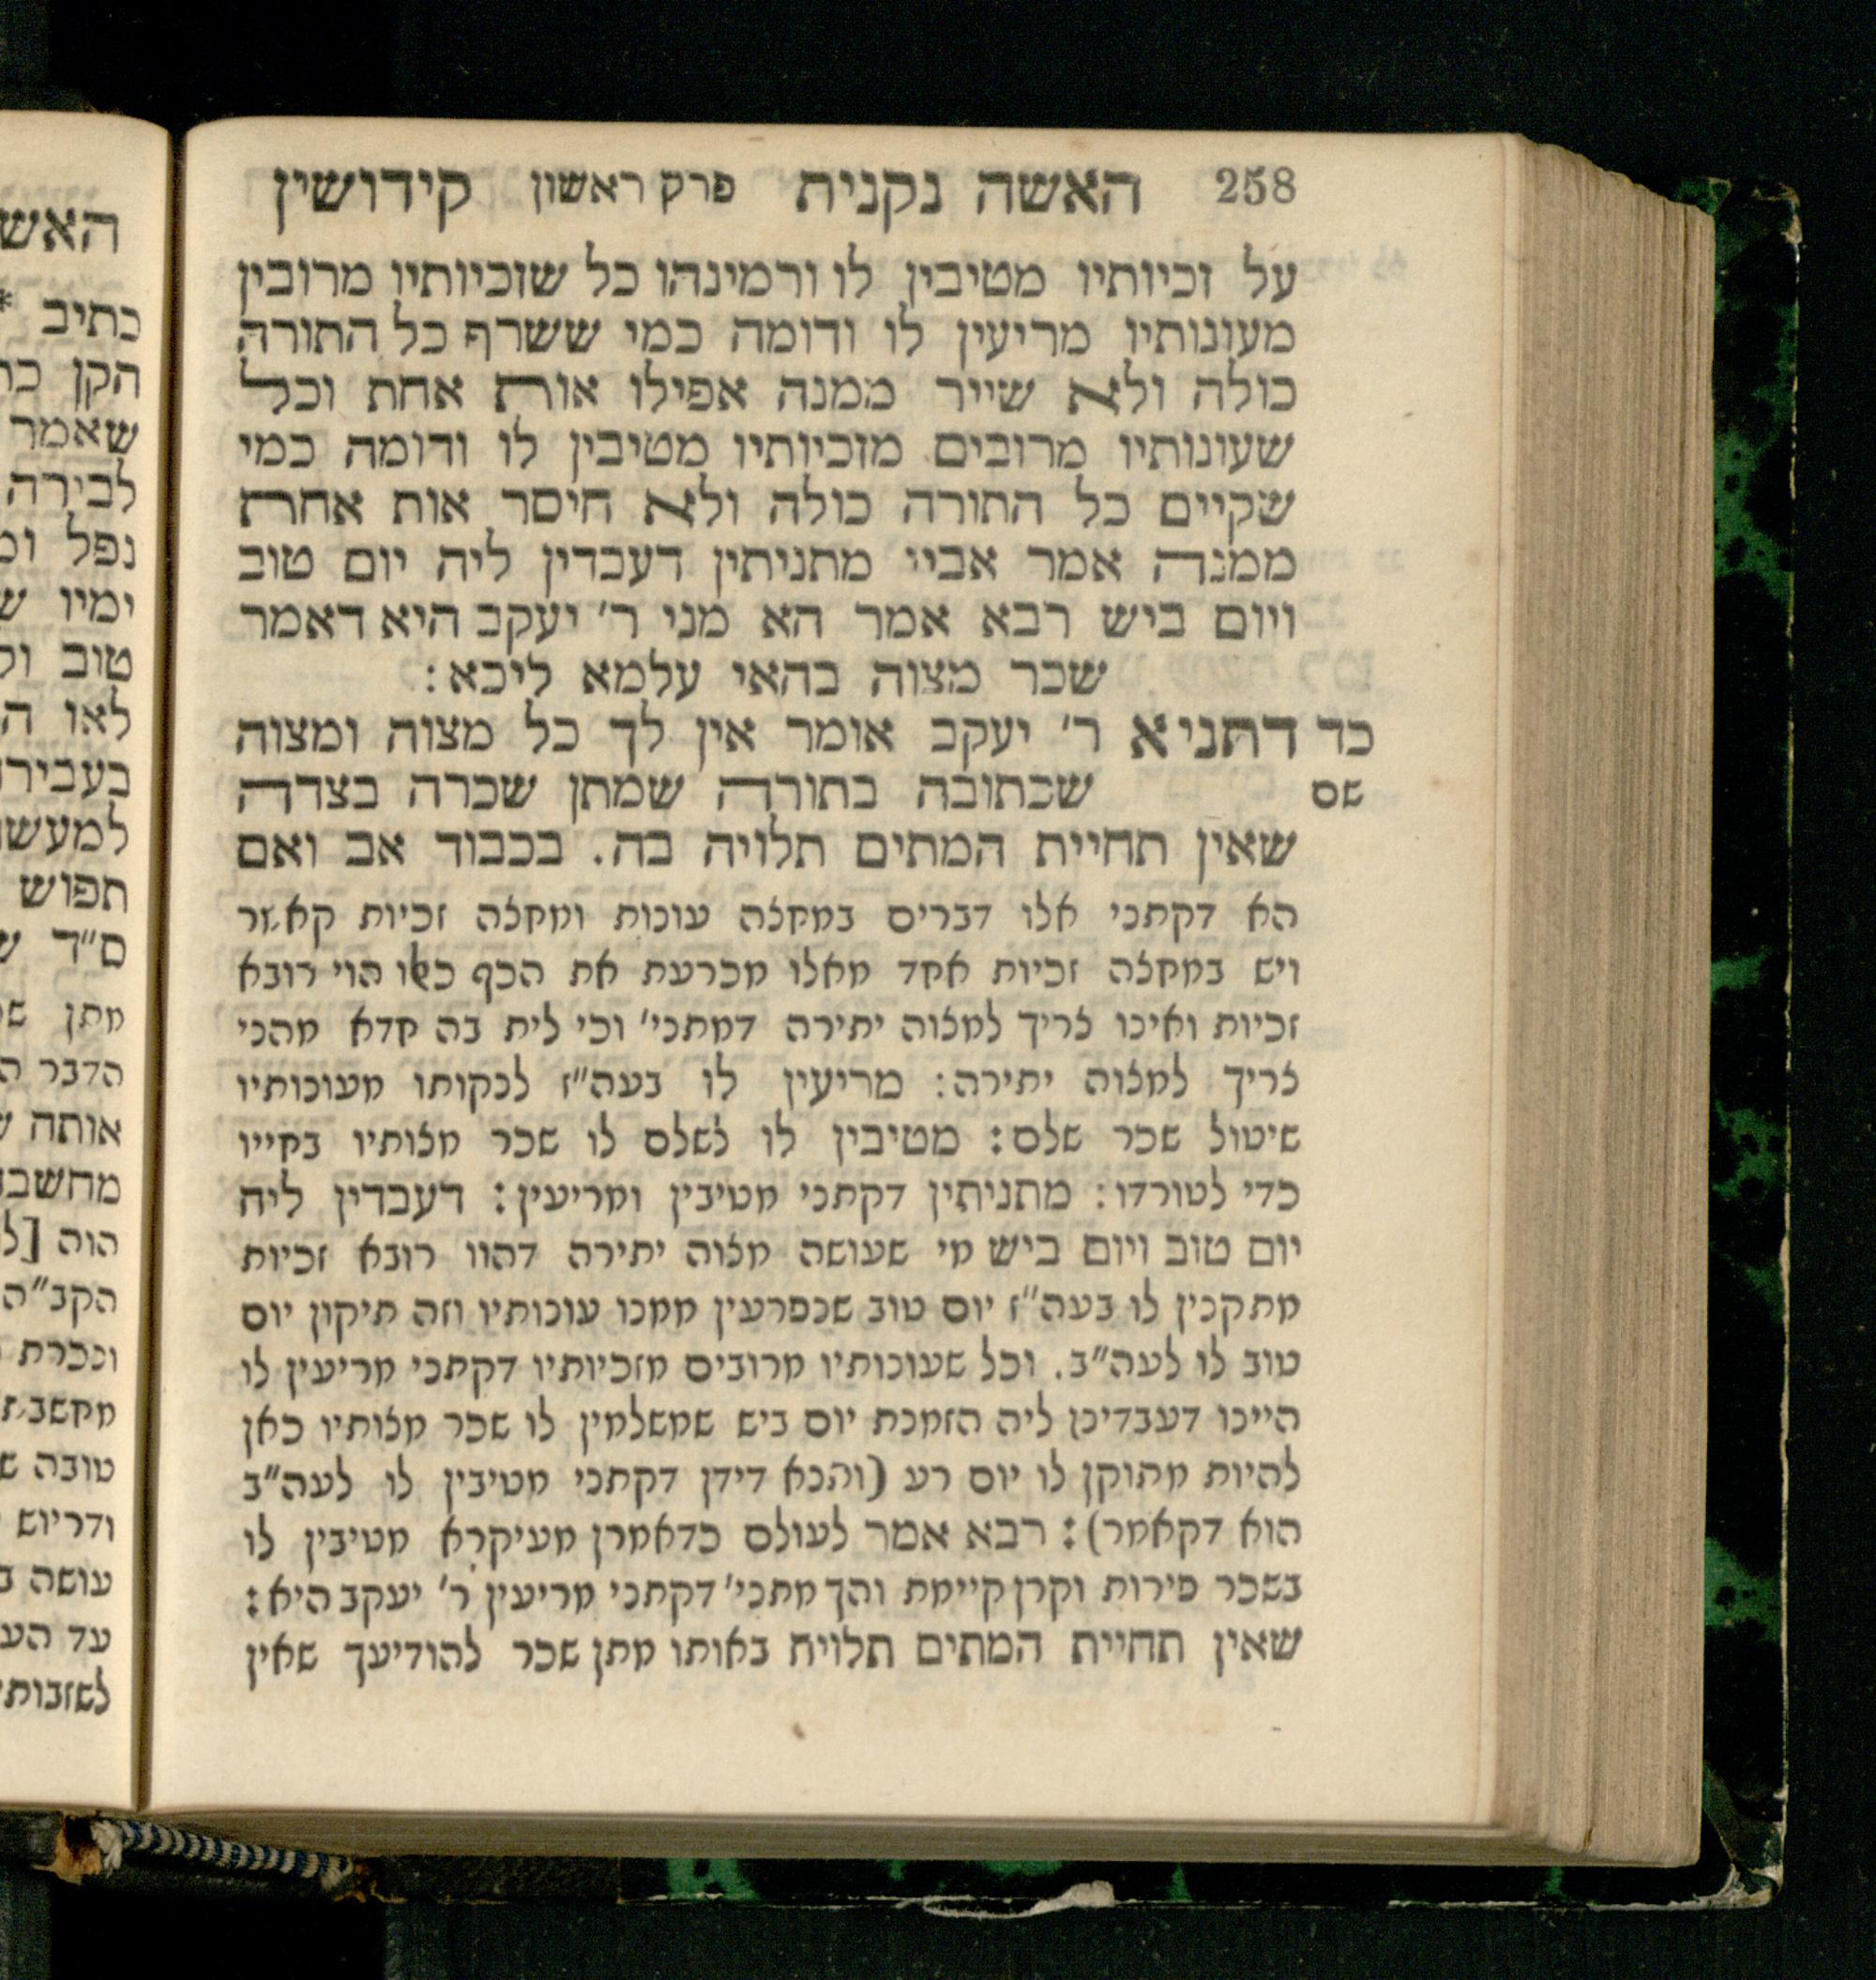 258 האשה נקנית פרק ראשון קידושין
על זכיותיו מטיבין לו ורמינהו כל שזכיותיו מרובין
מעונותיו מריעין לו ודומה כמי ששרף כל התורה
כולה ולא שייר ממנה אפילו אות אחת וכל
שעונותיו מרובים מזכיותיו מטיבין לו ודומה כמי
שקיים כל התורה כולה ולא חיסר אות אחת
ממנה אמר אביי מתניתין דעבדין ליה יום טוב
ויום ביש רבא אמר הא מני ר׳ יעקב היא דאמר
שכר מצוה בהאי עלמא ליכא:
כד דתניא ר׳ יעקב אומר אין לך כל מצוה ומצוה
שם שכתובה בתורה שמתן שכרה בצדה
שאין תחיית המתים תלויה בה. בכבוד אב ואם
הא דקתני אלו דברים במחצה עונות ומחצה זכיות קאמר
ויש במחצה זכיות אחד מאלו מכרעת את הכף כאלו הוי רובא
זכיות ואינו צריך למצוה יתירה דמתני׳ וכי לית בה חדא מהני
צריך למצוה יתירה: מריעין לו בעה״ז לנקותו מעונותיו
שיטול שכר שלם: מטיבין לו לשלם לו שכר מצותיו בחייו
כדי לטורדו: מתניתין דקתני מטיבין ומריעין: דעבדין ליה
יום טוב ויום ביש מי שעושה מצוה יתירה דהוו רובא זכיות
מתקנין לו בעה״ז יום טוב שנפרעין ממנו עונותיו וזה תיקון יום
טוב לו לעה״ב. וכל שעונותיו מרובים מזכיותיו דקתני מריעין לו
היינו דעבדינן ליה הזמנת יום ביש שמשלמין לו שכר מצותיו כאן
להיות מתוקן לו יום רע (והנא דידן דקתני מטיבין לו לעה״ב
הוא דקאמר): רבא אמר לעולם כדאמרן מעיקרא מטיבין לו
בשכר פירות וקרן קיימת והך מתני׳ דקתני מריעין ר׳ יעקב היא:
שאין תחיית המתים תלויה באותו מתן שכר להודיעך שאין
האש
כתיב *
הקן
שאמר
לבירה
נפל
ימיו
טוב
לאו
בעבירה
למעשה
תפוש
ס״ד
מתן
הדבר
אותה
הוה
הקב״ה
ונכרת
טובה
ודריוש
עושה
עד